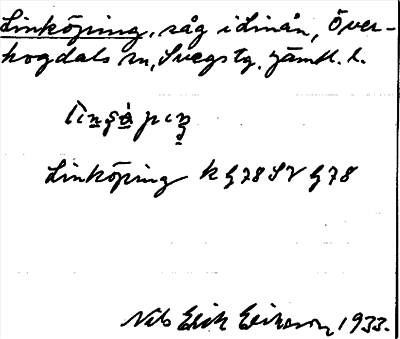 Linköping, såg i Linån, Över-
hogdals sn, Svegs tg. Jämtl. l.
Linköping k G78 SV G78
Nils Erik Eriksson 1933.